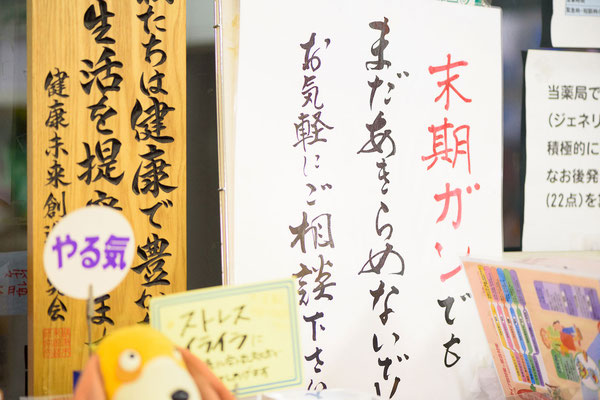 末期ガンでも
まだあきらめないで!
お気軽にご相談下さい
私たちは健康で豊か
生活を提案
健康未来創造
英会
やる気
ストレス
イライラに
当薬局で
(ジェネリ
積極的に
なお後発
(22点)を